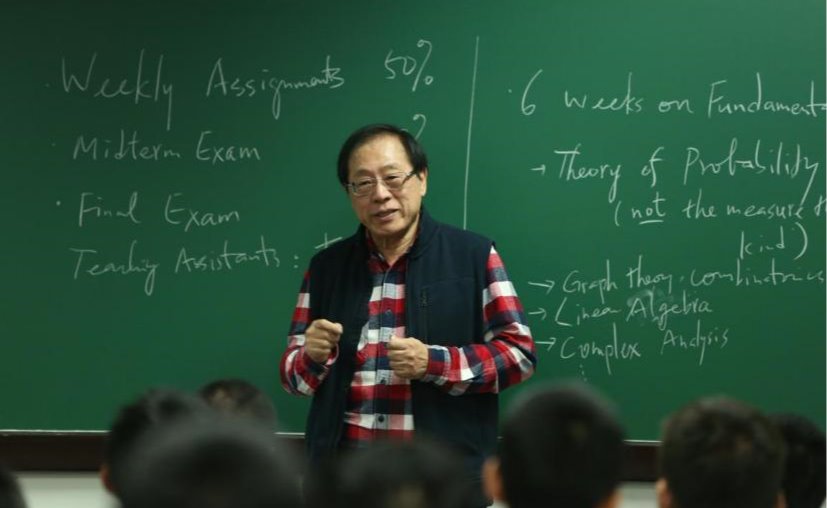 · Weekly Assignments 50%
· Midterm Exam ?
· Final Exam
Teaching Assistants:
· 6 weeks on Fundament
→ Theory of Probability
(not the measure
kind)
→ Graph theory, combinatorics
→ Linear Algebra
→ Complex Analysis
⋮